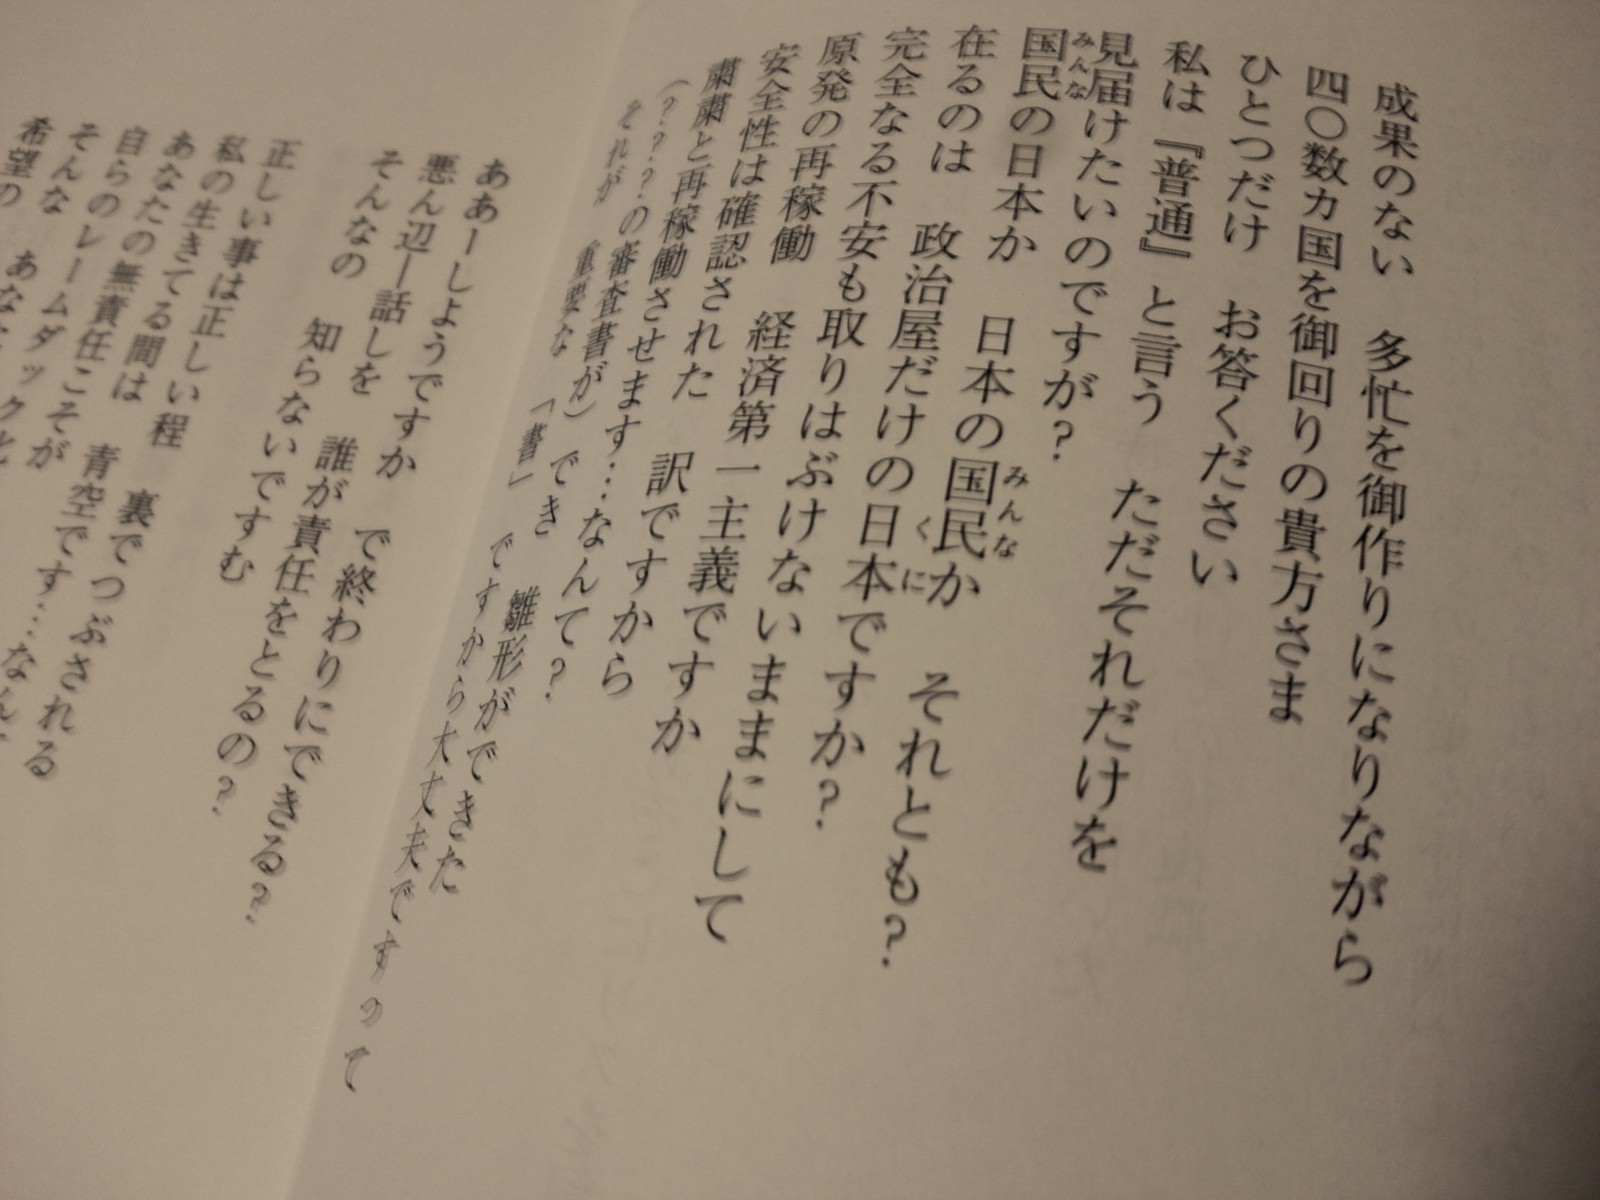 成果のない　多忙を御作りになりながら
四〇数カ国を御回りの貴方さま
ひとつだけ　お答ください
私は『普通』と言う　ただそれだけを
見届けたいのですが?
みんな　みんな
国民の日本か　日本の国民か　それとも?
くに
在るのは　政治屋だけの日本ですか?
完全なる不安も取りはぶけないままにして
原発の再稼働　経済第一主義ですか
安全性は確認された　訳ですから
粛粛と再稼働させます…なんて?
(???の審査書が)でき　雛形ができた
それが　重要な「書」　ですから大丈夫ですって
ああーしようですか　で終わりにできる?
悪ん辺ー話しを　誰が責任をとるの?
そんなの　知らないですむ
正しい事は正しい程　裏でつぶされる
私の生きてる間は　青空です…なん
あなたの無責任こそが
自らのレームダックと
そんな　あな
希望の